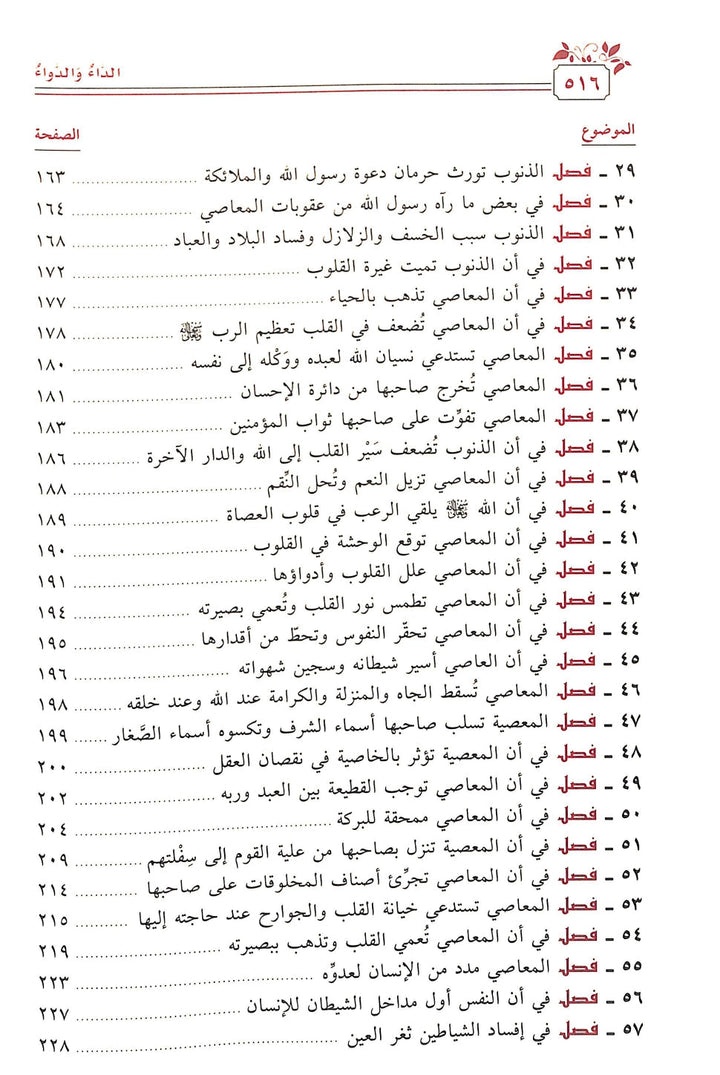 الدَّاءُ وَالدَّوَاءُ
٥١٦
الموضوع الصفحة
٢٩ ـ فصل الذنوب تورث حرمان دعوة رسول الله والملائكة ........ ١٦٣
٣٠ ـ فصل في بعض ما رآه رسول الله من عقوبات المعاصي ........ ١٦٤
٣١ ـ فصل الذنوب سبب الخسف والزلازل وفساد البلاد والعباد ........ ١٦٨
٣٢ ـ فصل في أن الذنوب تميت غيرة القلوب ........ ١٧٢
٣٣ ـ فصل في أن المعاصي تذهب بالحياء ........ ١٧٧
٣٤ ـ فصل في أن المعاصي تُضعف في القلب تعظيم الرب ........ ١٧٨
٣٥ ـ فصل المعاصي تستدعي نسيان الله لعبده ووَكْله إلى نفسه ........ ١٨٠
٣٦ ـ فصل المعاصي تُخرج صاحبها من دائرة الإحسان ........ ١٨١
٣٧ ـ فصل المعاصي تفوِّت على صاحبها ثواب المؤمنين ........ ١٨٣
٣٨ ـ فصل في أن الذنوب تُضعف سَيْر القلب إلى الله والدار الآخرة ........ ١٨٦
٣٩ ـ فصل في أن المعاصي تزيل النعم وتُحل النِّقم ........ ١٨٨
٤٠ ـ فصل في أن الله يلقي الرعب في قلوب العصاة ........ ١٨٩
٤١ ـ فصل في أن المعاصي توقع الوحشة في القلوب ........ ١٩٠
٤٢ ـ فصل في أن المعاصي علل القلوب وأدواؤها ........ ١٩١
٤٣ ـ فصل في أن المعاصي تطمس نور القلب وتُعمي بصيرته ........ ١٩٤
٤٤ ـ فصل في أن المعاصي تحقّر النفوس وتحطّ من أقدارها ........ ١٩٥
٤٥ ـ فصل في أن العاصي أسير شيطانه وسجين شهواته ........ ١٩٦
٤٦ ـ فصل المعاصي تُسقط الجاه والمنزلة والكرامة عند الله وعند خلقه ........ ١٩٨
٤٧ ـ فصل المعصية تسلب صاحبها أسماء الشرف وتكسوه أسماء الصَّغار ....... ١٩٩
٤٨ ـ فصل في أن المعصية تؤثر بالخاصية في نقصان العقل ........ ٢٠٠
٤٩ ـ فصل في أن المعاصي توجب القطيعة بين العبد وربه ........ ٢٠٢
٥٠ ـ فصل في أن المعاصي ممحقة للبركة ........ ٢٠٤
٥١ ـ فصل في أن المعصية تنزل بصاحبها من علية القوم إلى سِفْلتهم ........ ٢٠٩
٥٢ ـ فصل في أن المعاصي تجرِّئ أصناف المخلوقات على صاحبها ........ ٢١٤
٥٣ ـ فصل المعاصي تستدعي خيانة القلب والجوارح عند حاجته إليها ........ ٢١٥
٥٤ ـ فصل في أن المعاصي تُعمي القلب وتذهب ببصيرته ........ ٢١٩
٥٥ ـ فصل المعاصي مدد من الإنسان لعدوِّه ........ ٢٢٣
٥٦ ـ فصل في أن النفس أول مداخل الشيطان للإنسان ........ ٢٢٧
٥٧ ـ فصل في إفساد الشياطين ثغر العين ........ ٢٢٨